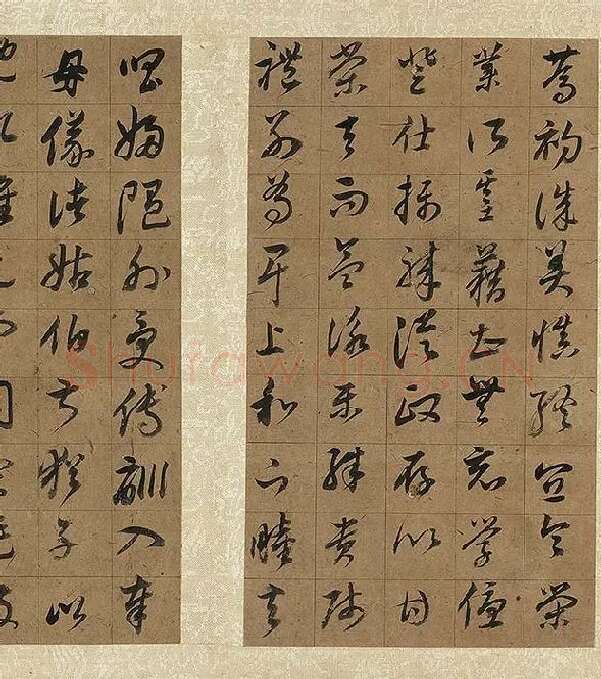 篤初誠美慎終宜令榮
業所基藉甚無竟學優
登仕攝職從政存以甘
棠去而益詠樂殊貴賤
禮別尊卑上和下睦夫
唱婦隨外受傅訓入奉
母儀諸姑伯叔猶子比
Shufawang.CN